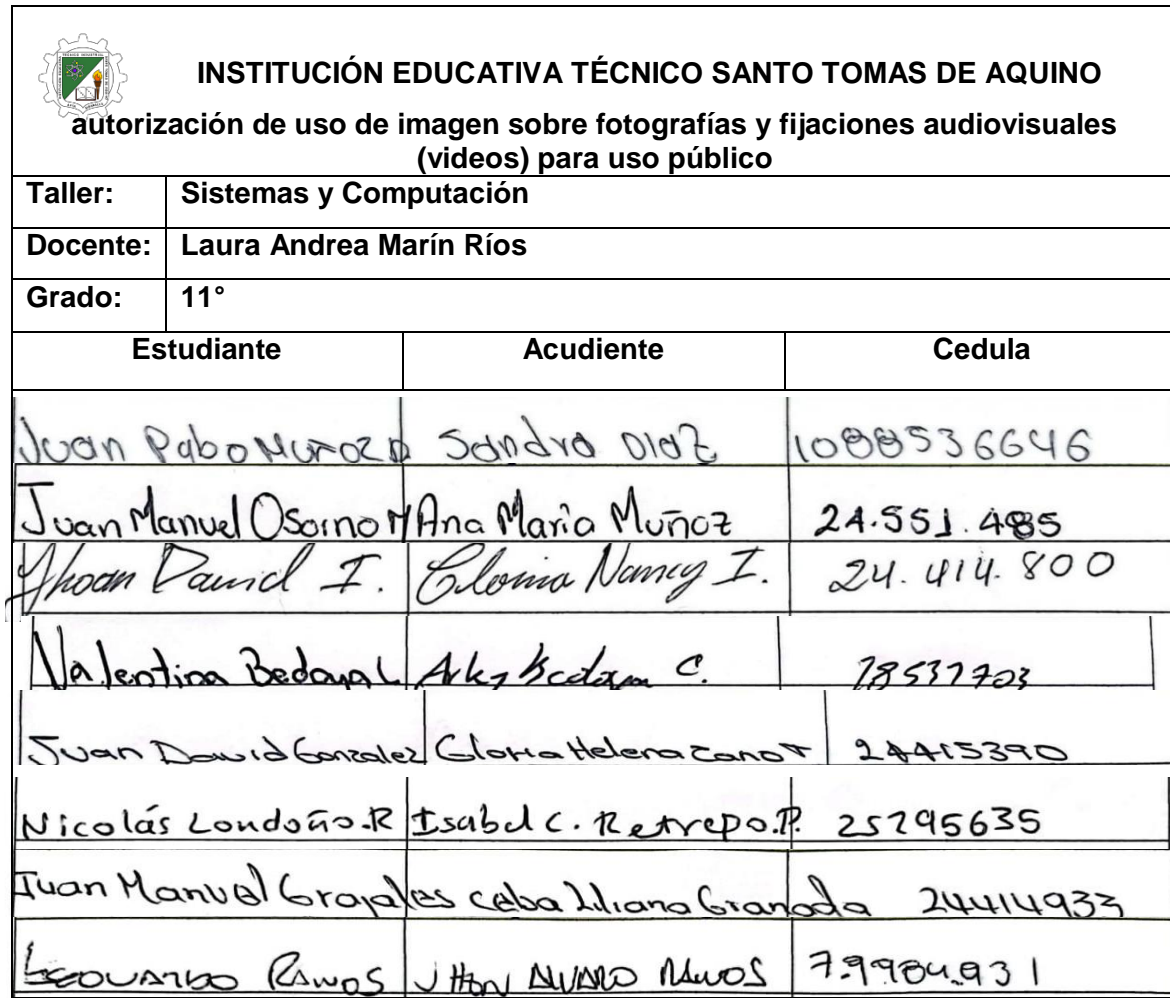 INSTITUCIÓN EDUCATIVA TÉCNICO SANTO TOMAS DE AQUINO
autorización de uso de imagen sobre fotografías y fijaciones audiovisuales
(videos) para uso público
Taller: Sistemas y Computación
Docente: Laura Andrea Marín Ríos
Grado: 11°
Estudiante Acudiente Cedula
Juan Pabo Muñoz D Sandra Diaz 1088536646
Juan Manuel Osorno M Ana Maria Muñoz 24.551.485
Jhoan David I. Gloria Nancy I. 24.414.800
Valentina Bedoya L C. 18537703
Juan David Gonzalez Gloria Helena Cano 24415390
Nicolás Londoño.R Isabel C. Retrepo.P. 25295635
Juan Manuel Grajales Ceba Liliana Granada 24414933
Ramos JHon Alvaro Ramos 7.9984.931